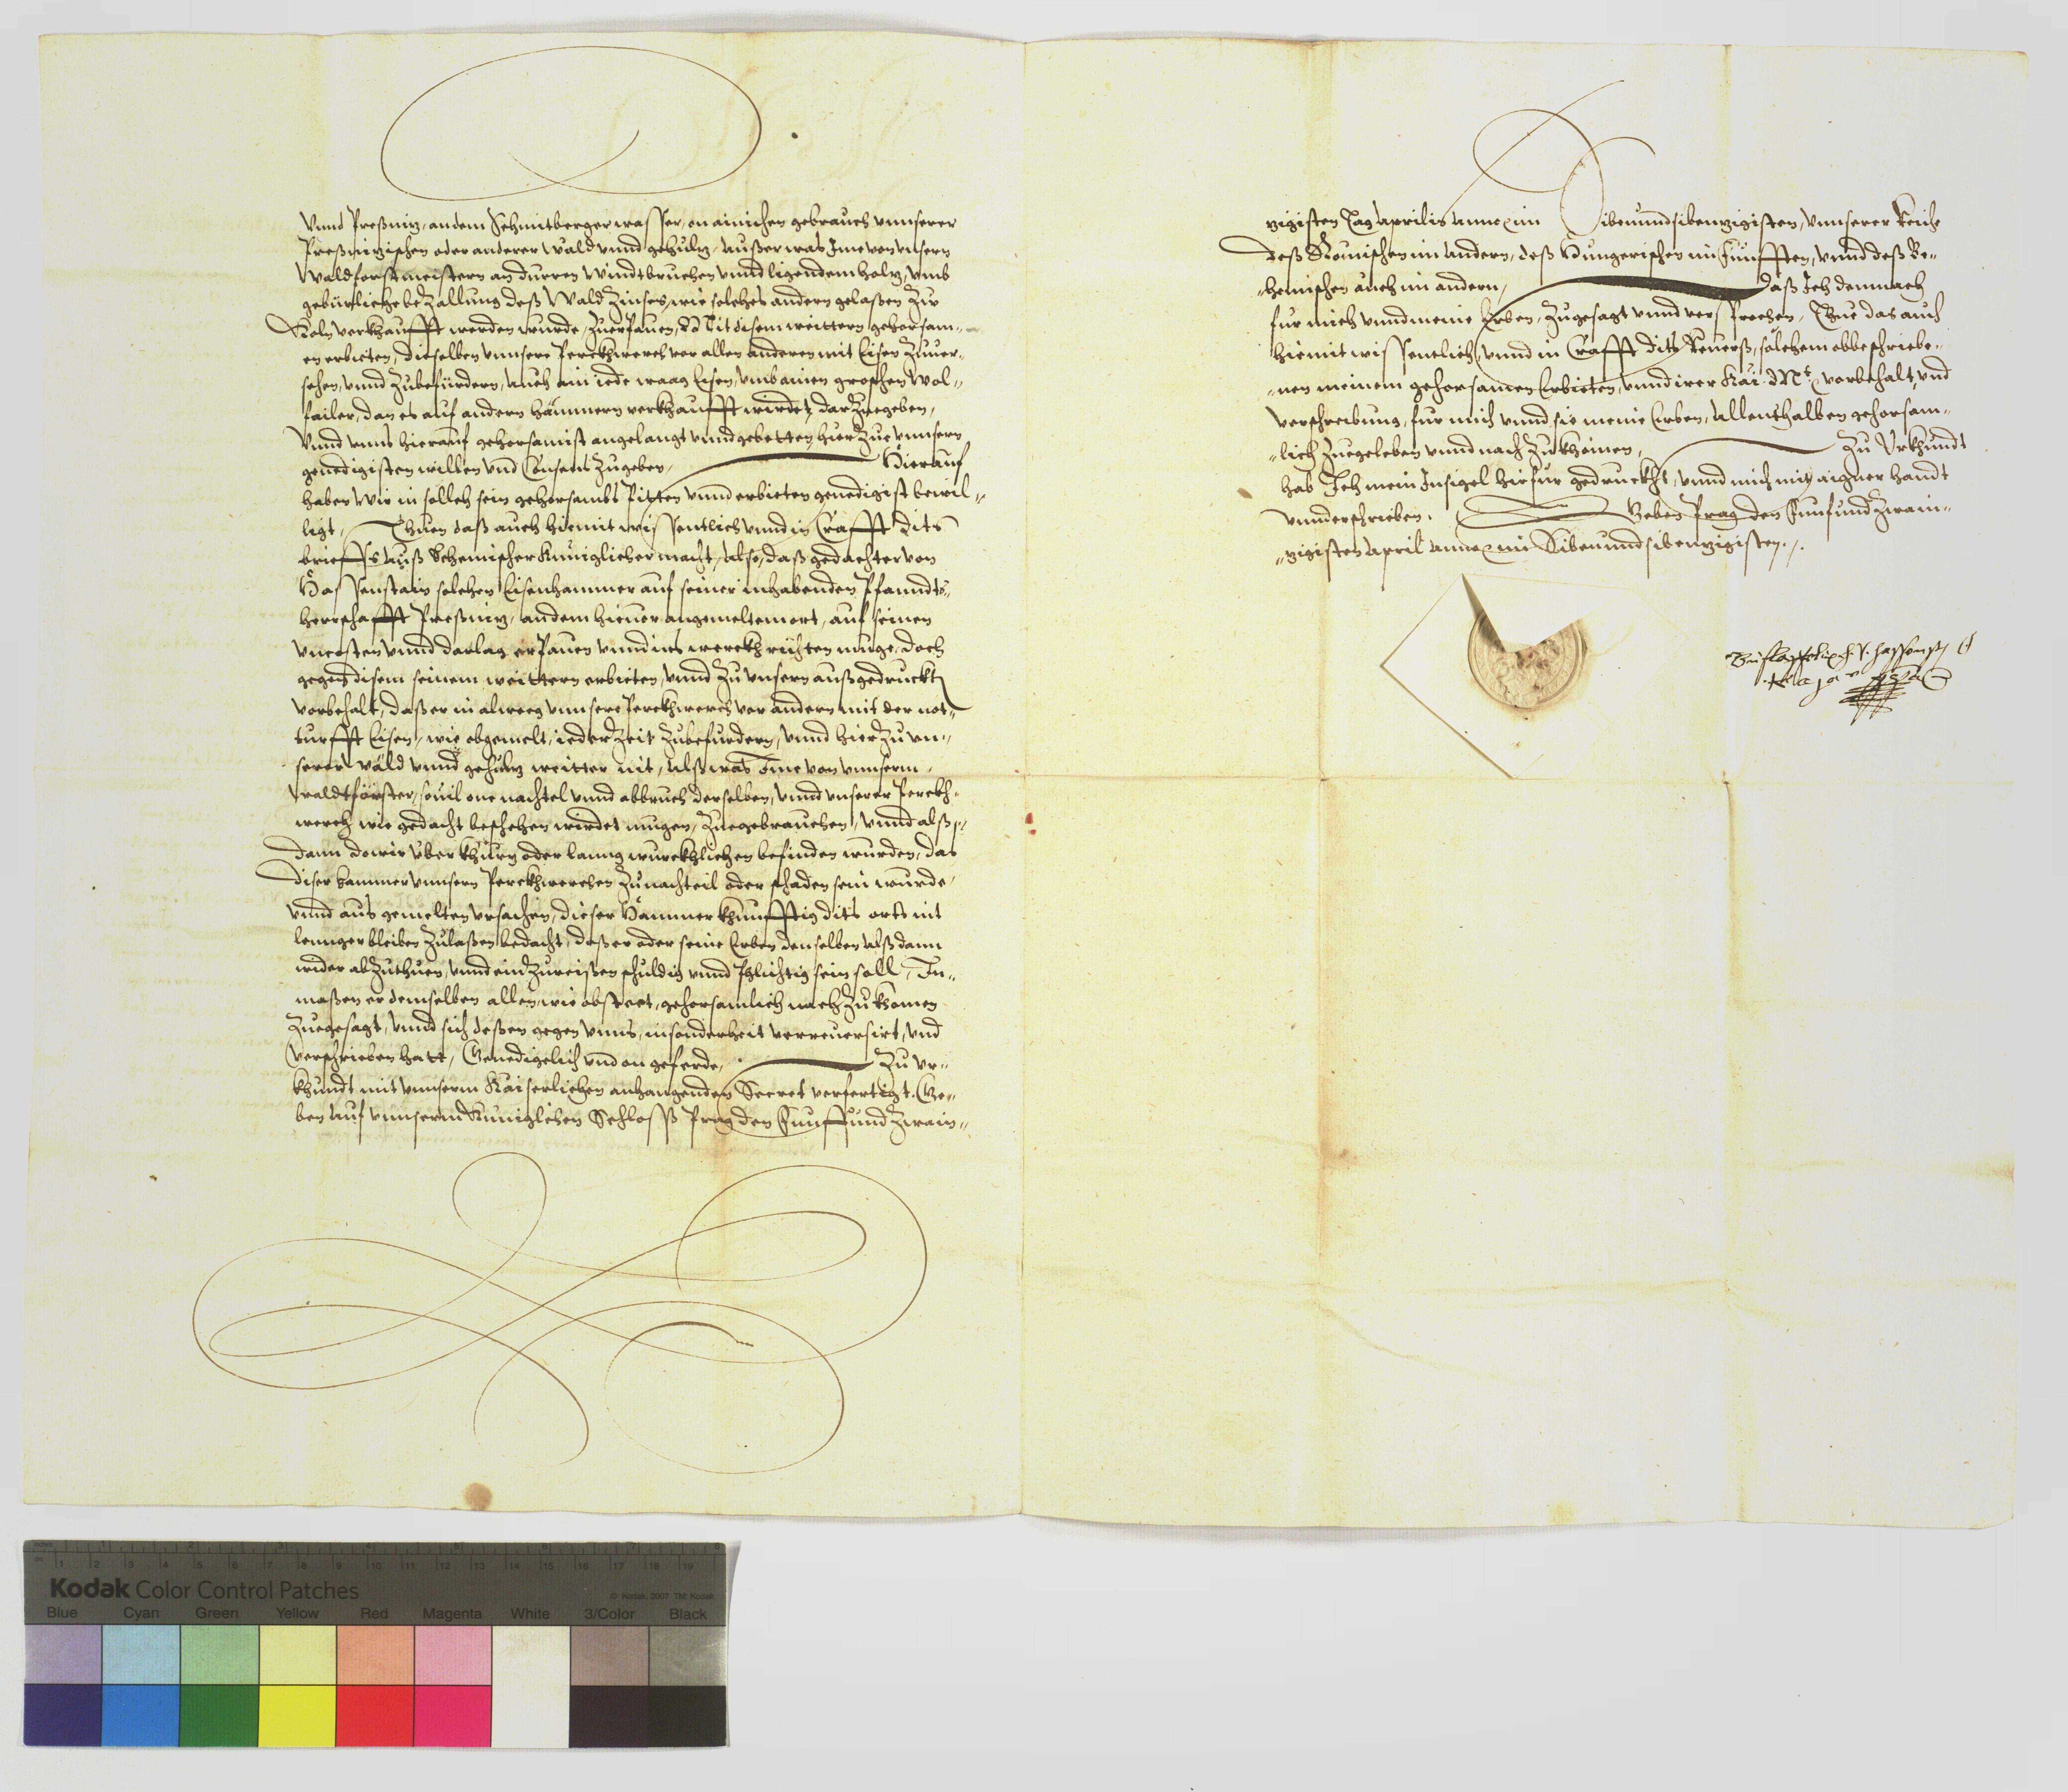 vnnd Preßniz, an dem Schmitberger wasser, on ainichen gebrauch vnnserer
Preßnizischen oder anderer Wäld vnnd gehulz, ausser was Ime von vnsern
Waldforstmeistern an durren Windtbruchen vnnd ligendem holz, vmb
gebürliche bezallung deß Wald Zinses, wie solches andern gelassen zur
Koln verkhaufft werden wurde, zuerpauen, Mit disem weittern gehorsam-
en erbieten, dieselben vnnsere Perckhwerch vor allen anderen mit Eisen zuuer-
sehen, vnnd zubefürdern, auch ain iede waag Eisen, vmb ainen groschen wol-
failer, dan es auf andern hämmern verkhaufft wirdet, darzuegeben,
Vnnd vnns hierauf gehorsamist angelangt vnnd gebetten, hierzue vnnsern
genedigisten willen vnd Consens zugeben, Hierauf
haben Wir in solch sein gehorsambs Pitten vnnd erbieten genedigist bewil-
ligt, Thuen daß auch hiemit wissentlich vnnd in Crafft dits
brieffs auß Behemischer Kuniglicher macht, Also, daß gedachter von
Hassenstain solchen Eisenhammer auf seiner inhabenden Pfanndts-
herrschafft Preßniz, an dem hieuor angemeltem ort, auf seinen
vncosten vnnd darlag erpauen vnnd ins werckh richten muge, doch
gegen disem seinem weittern erbieten, vnnd zu vnsern außgedruckten
vorbehalt, daß er in alweeg vnnsere Perckhwerch vor andern mit der not-
turfft Eisen, wie obgemelt, ieder Zeit zubefurdern, vnnd hierzu vn-
serer wäld vnnd gehulz weitter nit, alß was Ime von vnnserm
Waldtförster, souil one nachtel vnnd abbruch derselben, vnnd vnserer Perckh-
werch wie gedacht beschehen wirdet mugen, zuegebrauchen, vnnd alß-
dann do wir vber khurz oder lanng wurckhlichen befinden wurden, das
diser hammer vnnsern Perckhwerchen zu nachteil oder schaden sein wurde,
vnnd aus gemelten vrsachen, dieser Hammer khunfftig dits orts nit
lennger bleiben zulassen bedacht, daß er oder seine Erben denselben alßdann
wider abzuthuen, vnnd einzureissen schuldig vnnd pflichtig sein soll, In-
massen er demselben allen, wie obsteet, gehorsamlich nachzukhomen
zuegesagt, vnnd sich dessen gegen vnns, insonderheit verreuersirt, vnd
verschrieben hatt, Genedigelich vnd on geferde, Zu Vr-
khundt mit vnnserm Kaiserlichen anhangenden Secret verfertigt. Ge-
ben auf vnnserm Kuniglichen Schloß Prag den Funffundzwain-
zigisten Tag Aprilis Anno im Sibenundsibenzigisten, vnnserer Reiche
deß Romischen im andern, deß Hungerischen im Funfften, vnnd deß Be-
hemischen auch im andern, daß Ich demnach
fur mich vnnd meine Erben, zugesagt vnnd versprochen, Thue das auch
hiemit wissentlich, vnnd in Crafft dits Reuerß, solchem obbeschriebe-
nen meinem gehorsamen Erbieten, vnnd irer Kai: Mt: vorbehalt, vnd
verschreibung, fur mich vnnd sie meine Erben, allenthalben gehorsam-
lich zuegeleben vnnd nachzukhomen, Zu Vrkhundt
hab Ich mein Insigel hirfur gedruckht, vnnd mich mit aigner handt
vnnderschrieben. Geben Prag den Funfundzwain-
zigisten April Anno im Sibenundsibenzigisten.
Kodak Color Control Patches
© Kodak, 2007 TM: Kodak
Blue Cyan Green Yellow Red Magenta White 3/Color Black